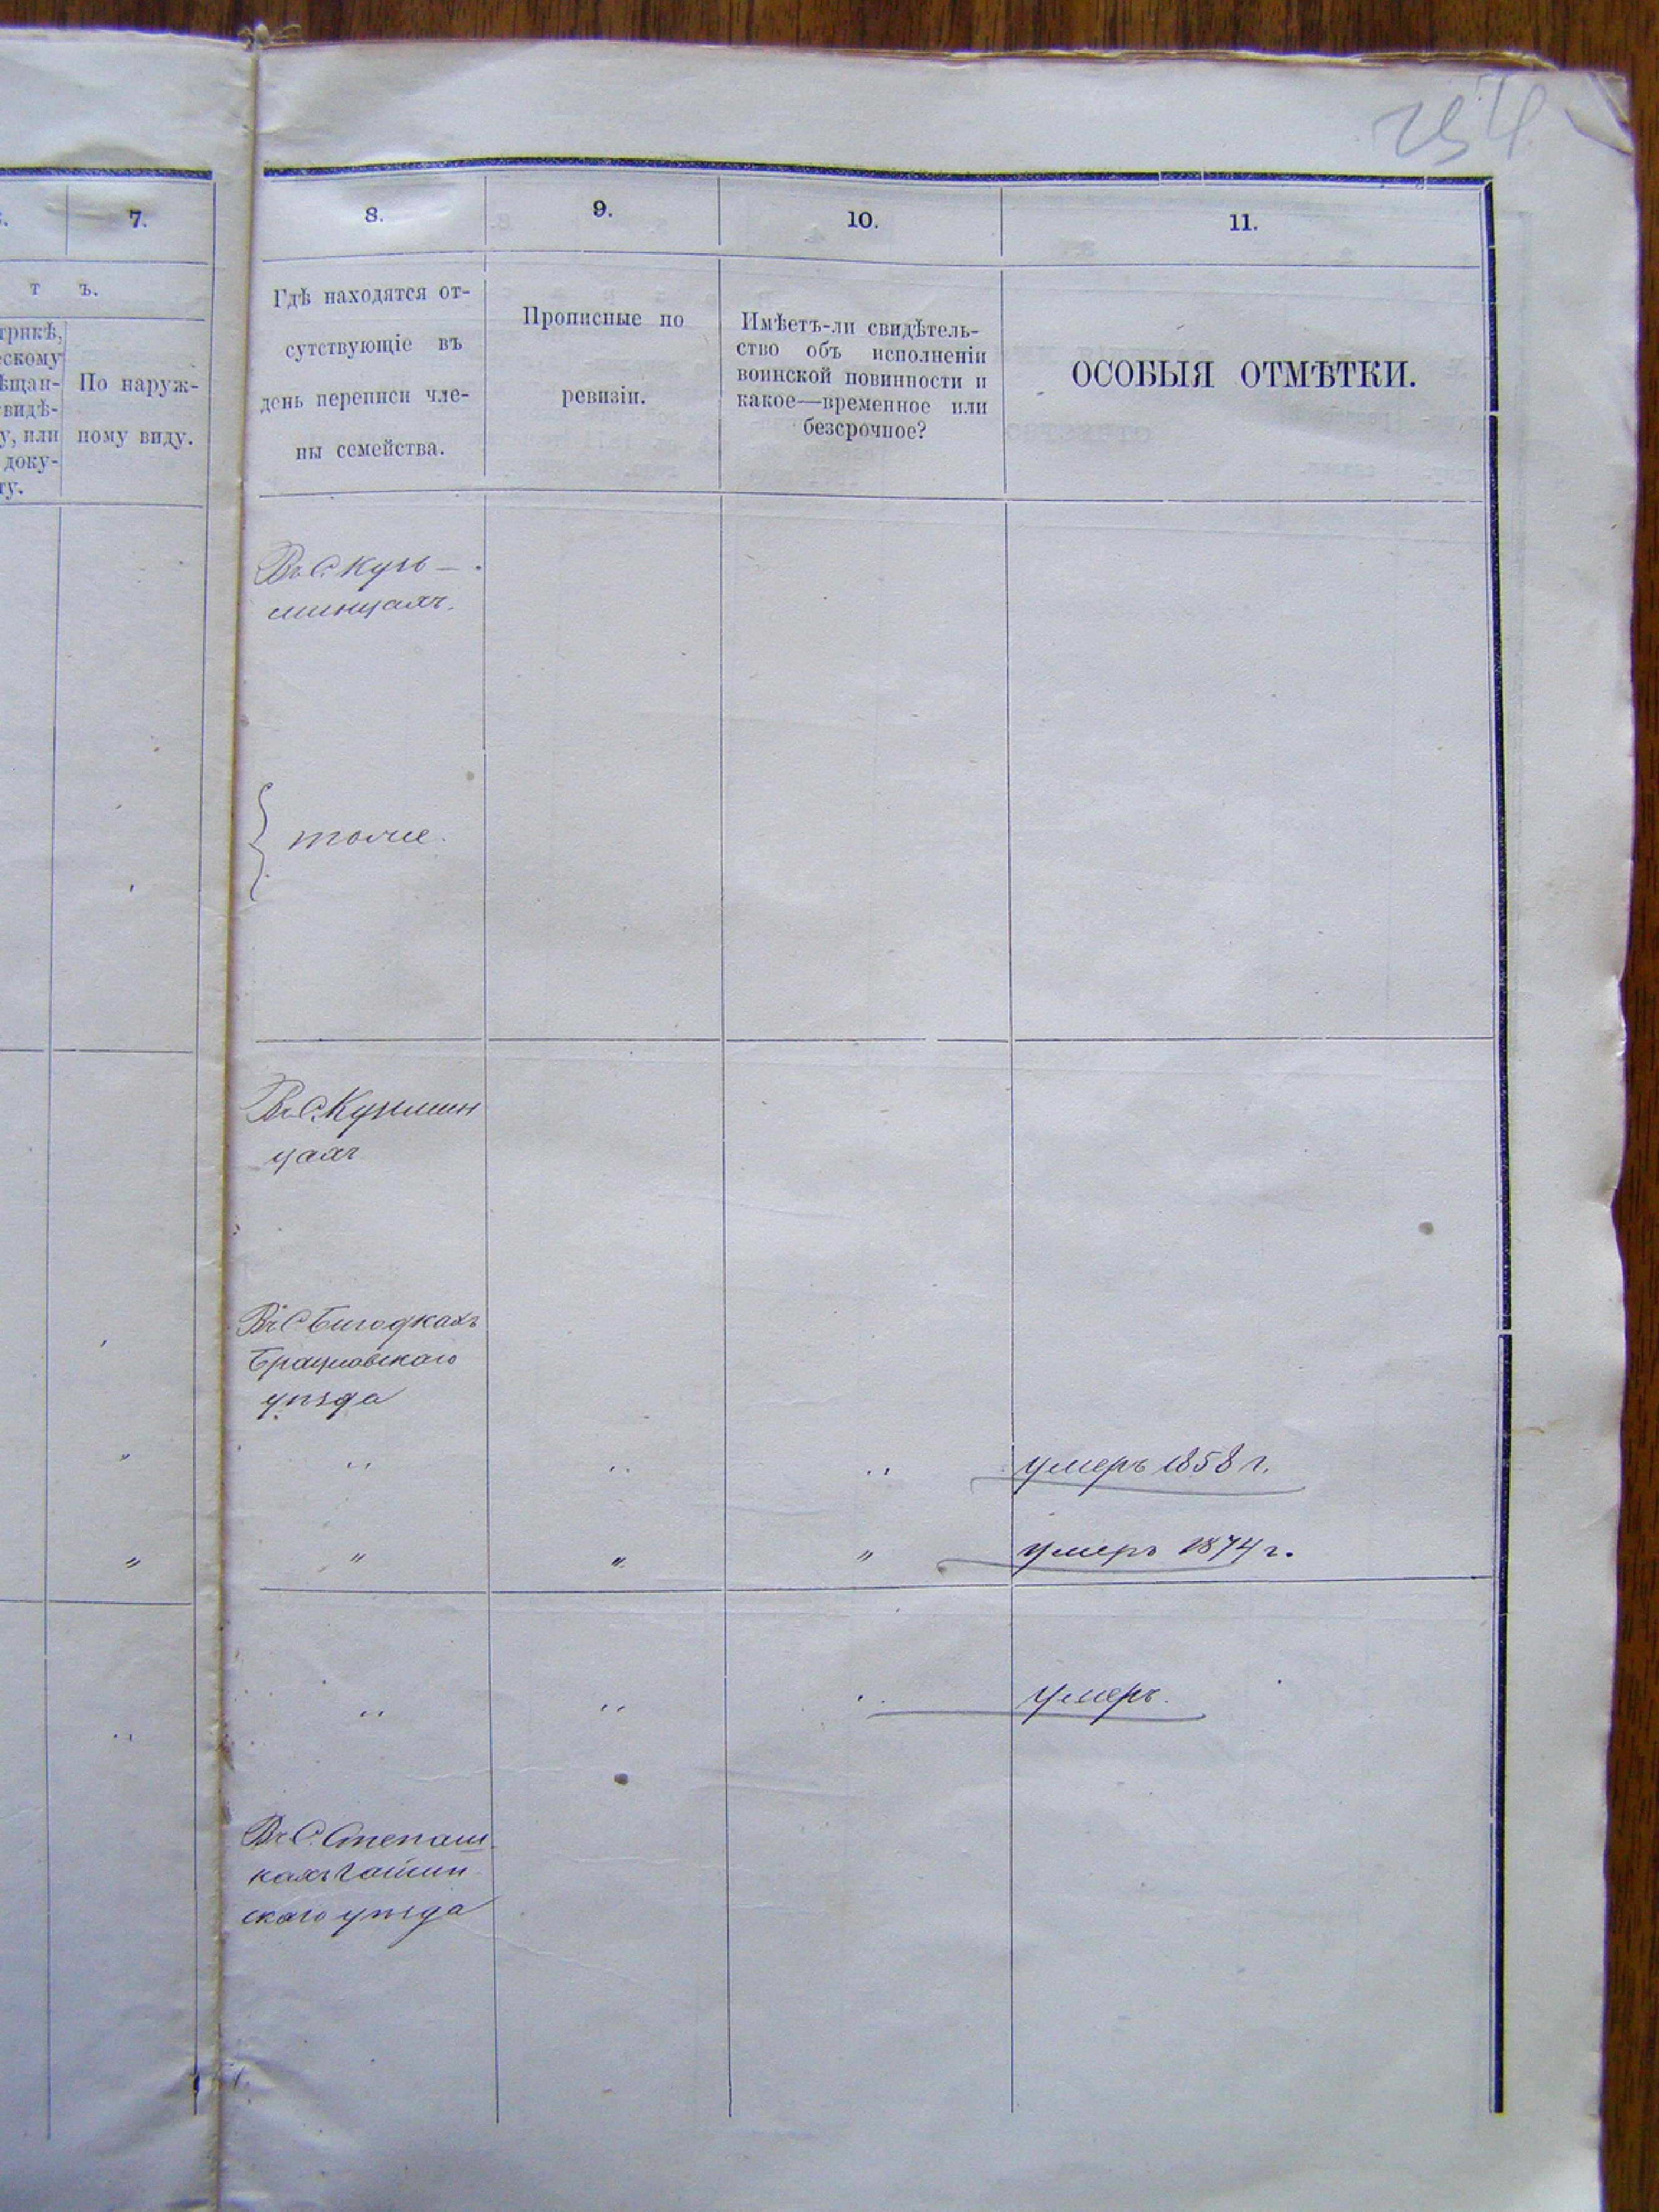 254
7.
8.
9.
10.
11.
т ъ.
трикѣ,
ескому
ѣщан-
свидѣ-
у, или
доку-
ту.
По наруж-
ному виду.
Гдѣ находятся от-
сутствующіе въ
день переписи чле-
ны семейства.
Прописные по
ревизіи.
Имѣетъ-ли свидѣтель-
ство объ исполненіи
воинской повинности и
какое—временное или
безсрочное?
ОСОБЫЯ ОТМѢТКИ.
Въ С. Кузь-
минцахъ.
тоже.
Въ С. Кузмин
цахъ
Въ С.
Брацлавскаго
уѣзда
" " " " умеръ 1858 г.
" " " " умеръ 1874 г.
" " " " умеръ.
Въ С. Степаш
кахъ Гайсин
скаго уѣзда